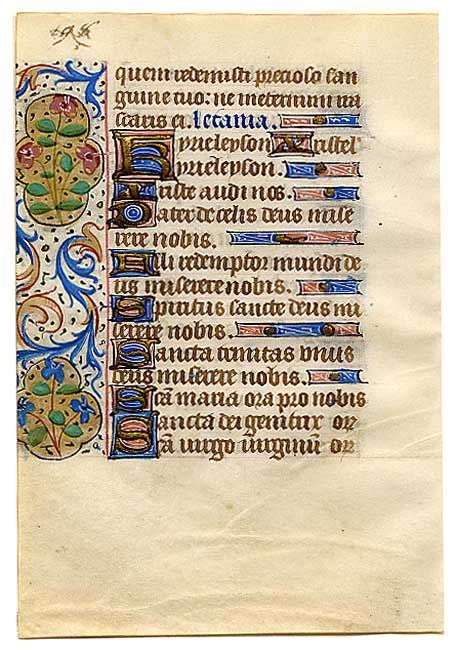 quem redemisti precioso san
guine tuo: ne ineternum ira
scaris ei. Letania.
Kyrieleyson Xpistel
Kyrieleyson.
Xpiste audi nos.
Pater de celis deus mise
rere nobis.
Fili redemptor mundi de
us miserere nobis.
Spiritus sancte deus mi
serere nobis.
Sancta trinitas vnus
deus miserere nobis.
Scā maria ora pro nobis
Sancta dei genitrix or
Scā uirgo uirginū or